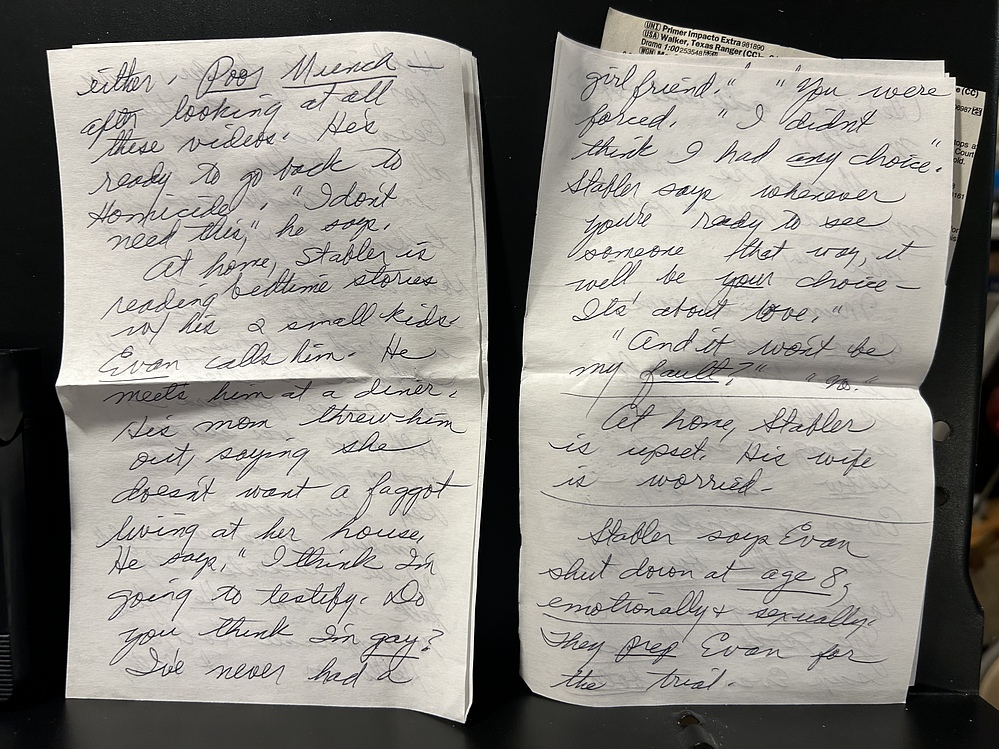 either. Poor Munch —
after looking at all
these videos. He's
ready to go back to
Homicide. "I don't
need this," he says.
At home, Stabler is
reading bedtime stories
w/ his 2 small kids.
Evan calls him. He
meets him at a diner.
His mom threw him
out, saying she
doesn't want a faggot
living at her house.
He says, "I think I'm
going to testify. Do
you think I'm gay?
I've never had a
(UNI) Primer Impacto Extra 981890
(USA) Walker, Texas Ranger (CC)
Drama 1:00 253548
girlfriend." "You were
forced. "I didn't
think I had any choice."
Stabler says whenever
you're ready to see
someone that way, it
will be your choice —
It's about love."
"And it won't be
my fault?" "No."
At home, Stabler
is upset. His wife
is worried —
Stabler says Evan
shut down at age 8,
emotionally & sexually.
They prep Evan for
the trial.
(CC)
Court